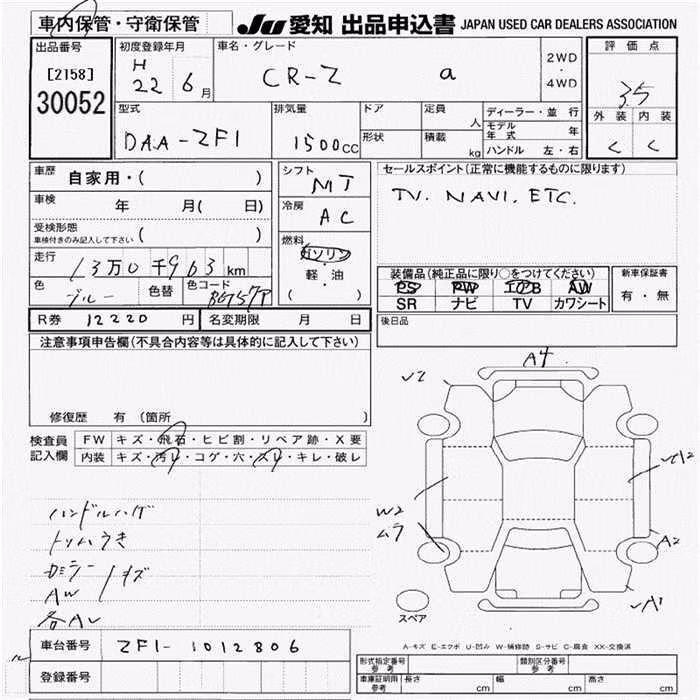 車内保管・守衛保管
JU 愛知 出品申込書 JAPAN USED CAR DEALERS ASSOCIATION
出品番号
[2158]
30052
初度登録年月
H
22 6月
車名・グレード
CR-Z a
2WD
・
4WD
評価点
3.5
外装 内装
C C
型式
DAA-ZF1
排気量
1500cc
ドア
形状
定員
人
積載
kg
ディーラー・並行
モデル年式 年
ハンドル 左・右
車歴 自家用・( )
車検 年 月( 日)
受検形態
車検付きのみ記入して下さい ( )
走行 13万0千963km
色 ブルー 色替 色コード BG57P
シフト
MT
冷房
AC
燃料
ガソリン
軽・油
( )
セールスポイント(正常に機能するものに限ります)
TV. NAVI. ETC.
装備品(純正品に限り○をつけてください)
PS PW エアB AW
SR ナビ TV カワシート
新車保証書
有・無
R券 12220 円 名変期限 月 日
後日品
注意事項申告欄(不具合内容等は具体的に記入して下さい)
修復歴 有(箇所 )
検査員
記入欄
FW キズ・飛石・ヒビ割・リペア跡・X要
内装 キズ・汚レ・コゲ・穴・スレ・キレ・破レ
ハンドルハゲ
トリムうき
Dミラー
AW キズ
A4
W2
ムラ
A2
A1
スペア
A-キズ E-エクボ U-凹み W-補修跡 S-サビ C-腐食 XX-交換済
車台番号 ZF1-1012806
登録番号
形式指定番号
参考
類別区分番号
参考
車庫証明用
参考
長さ cm 幅 cm 高さ cm